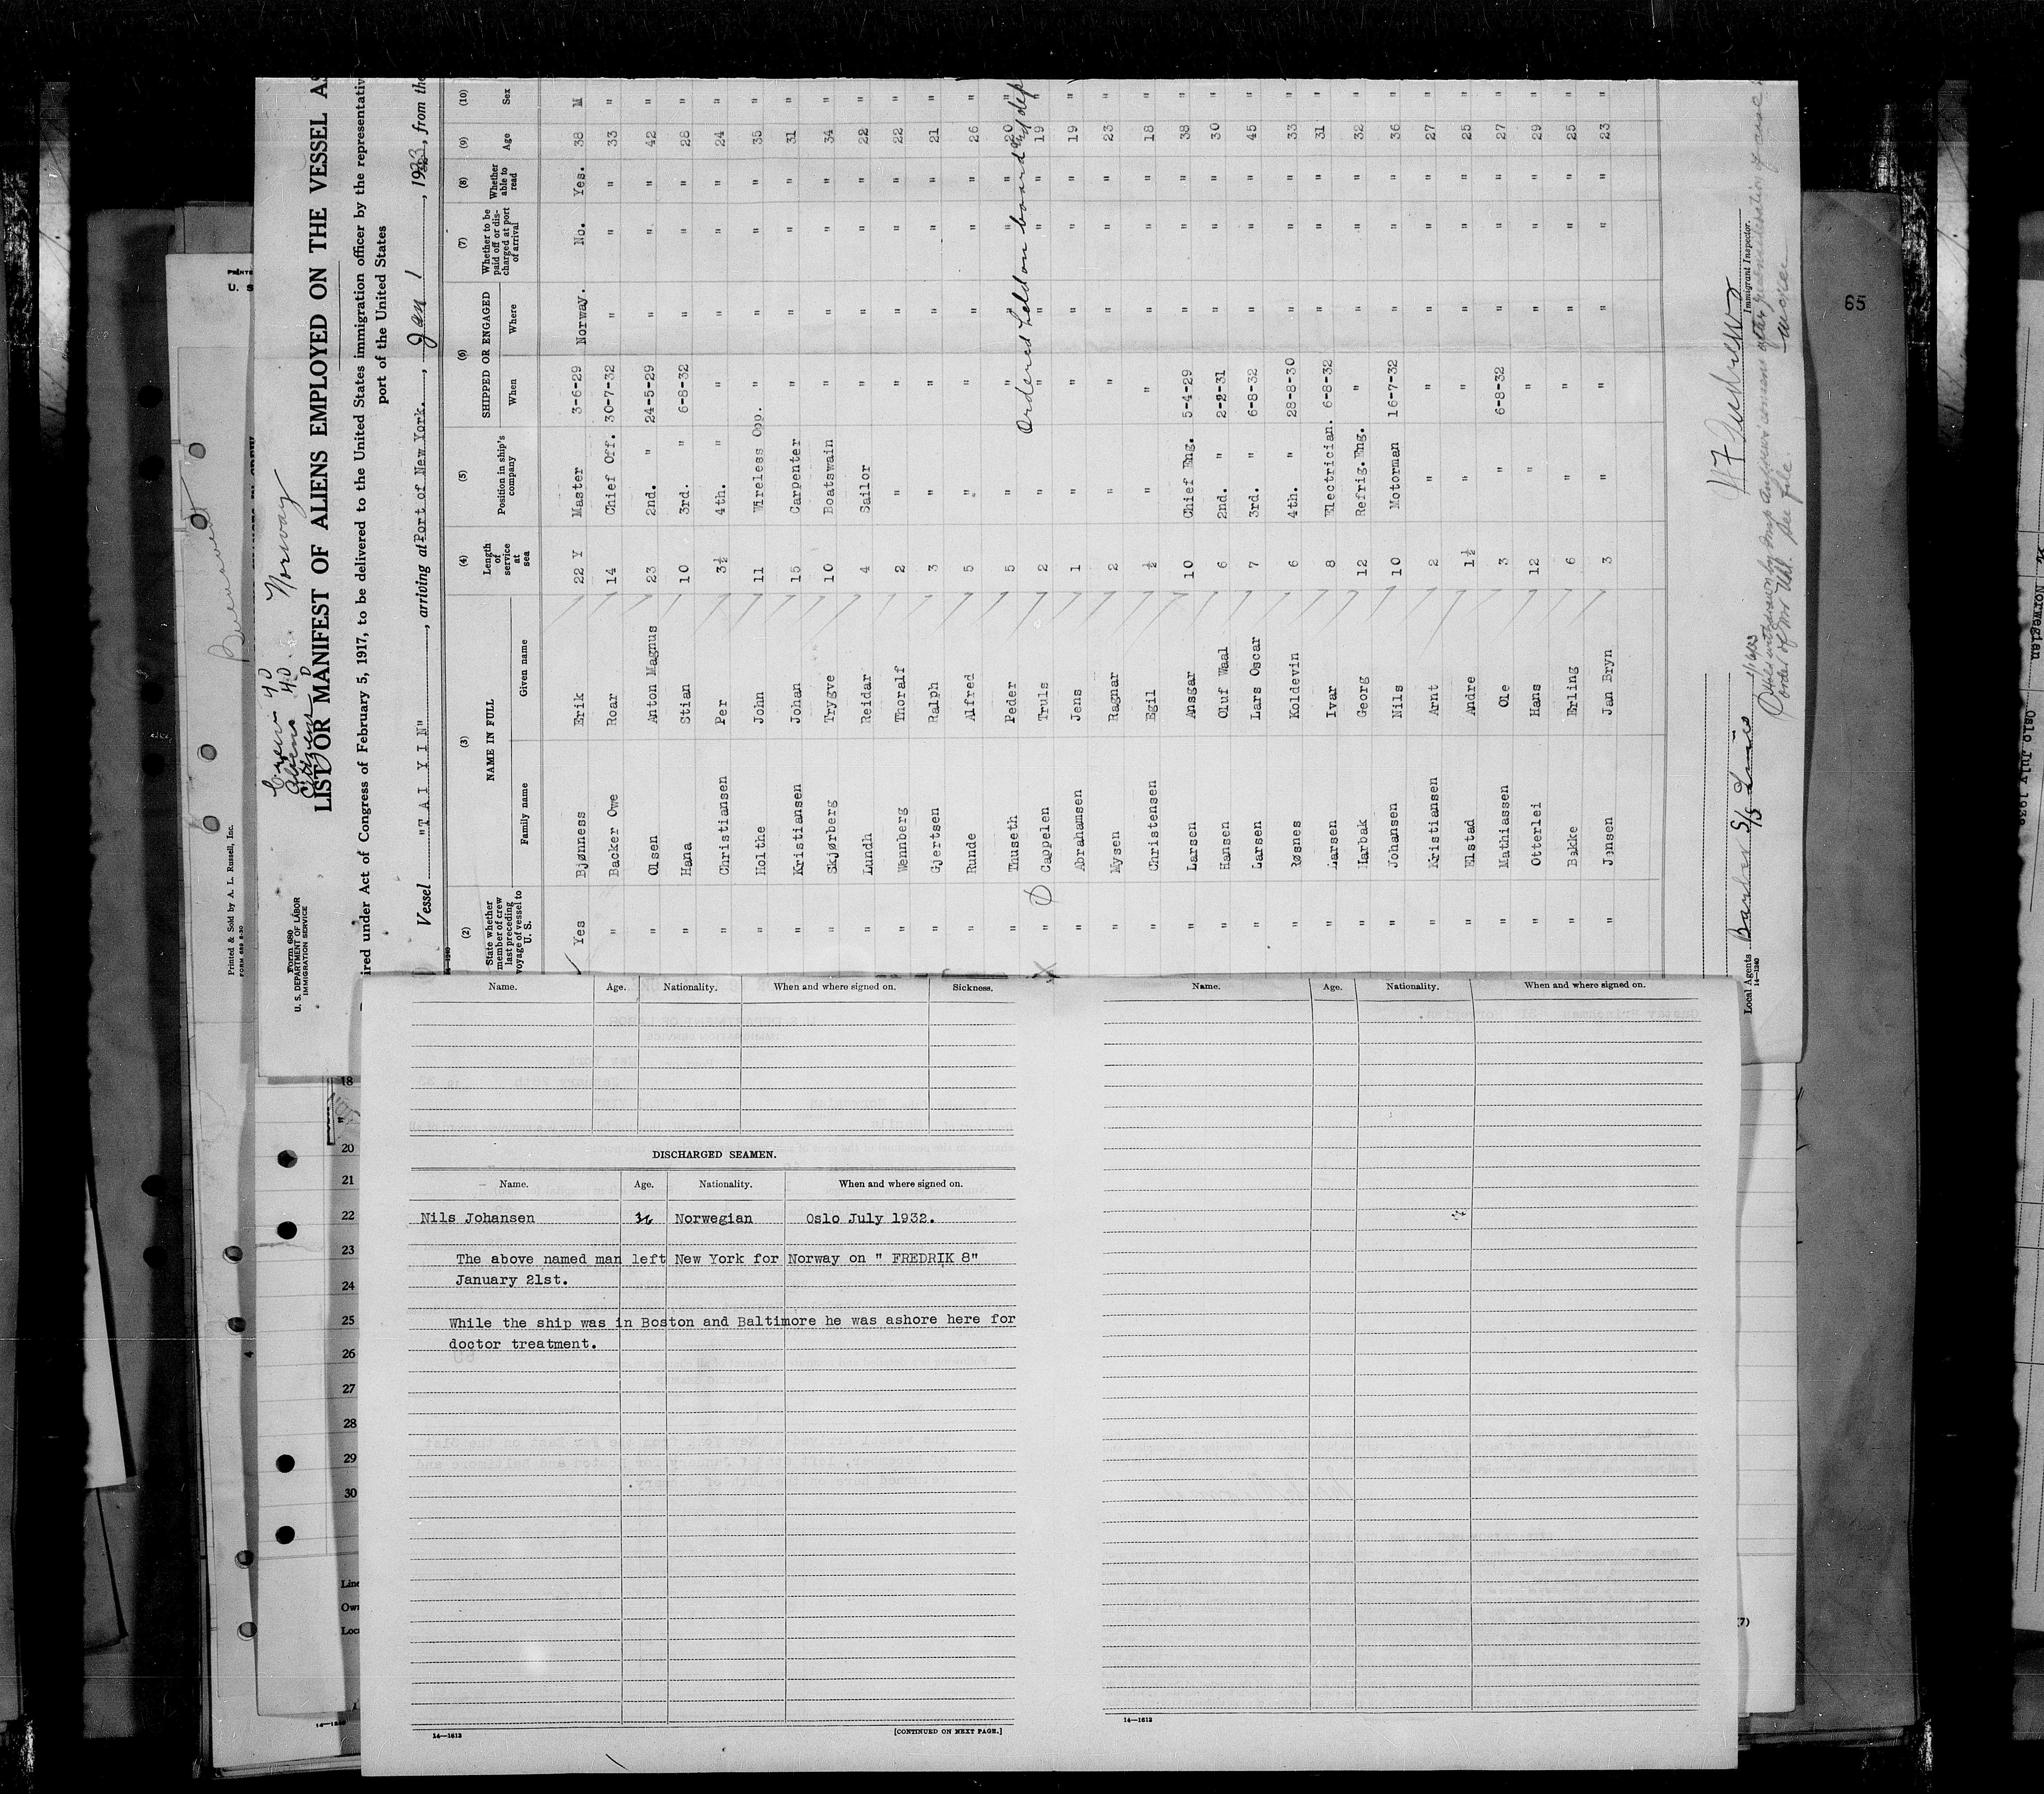 Crew 40
Aliens 40
Norway
Form 680
U. S. DEPARTMENT OF LABOR
IMMIGRATION SERVICE
LIST OR MANIFEST OF ALIENS EMPLOYED ON THE VESSEL AS
ired under Act of Congress of February 5, 1917, to be delivered to the United States immigration officer by the representativ
port of the United States
Vessel "T A I Y I N", arriving at Port of New York., Jan 1, 1933, from the
(2) (3) (4) (5) (6) (7) (8) (9) (10)
State whether member of crew last preceding voyage of vessel to U. S. NAME IN FULL Family name Given name Length of service at sea Position in ship's company SHIPPED OR ENGAGED When Where Whether to be paid off or discharged at port of arrival Whether able to read Age Sex
Yes Bjønness Erik 22 Y Master 3-6-29 Norway. No. Yes. 38 M
" Backer Owe Roar 14 Chief Off. 30-7-32 " " " 33 "
" Olsen Anton Magnus 23 2nd. " 24-5-29 " " " 42 "
" Hana Stian 10 3rd. " 6-8-32 " " " 28 "
" Christiansen Per 3½ 4th. " " " " " 24 "
" Holthe John 11 Wireless Opp. " " " " 35 "
" Kristiansen Johan 15 Carpenter " " " " 31 "
" Skjørberg Trygve 10 Boatswain " " " " 34 "
" Lundh Reidar 4 Sailor " " " " 22 "
" Wennberg Thoralf 2 " " " " " 22 "
" Gjertsen Ralph 3 " " " " " 21 "
" Runde Alfred 5 " " " " " 26 "
" Thuseth Peder 5 " " " " " 20 "
" Cappelen Truls 2 " " " " " 19 "
Ordered held on board and dep
" Abrahamsen Jens 1 " " " " " 19 "
" Mysen Ragnar 2 " " " " " 23 "
" Christensen Egil ½ " " " " " 18 "
" Larsen Ansgar 10 Chief Eng. 5-4-29 " " " 38 "
" Hansen Oluf Waal 6 2nd. " 2-2-31 " " " 30 "
" Larsen Lars Oscar 7 3rd. " 6-8-32 " " " 45 "
" Røsnes Koldevin 6 4th. " 28-8-30 " " " 33 "
" Larsen Ivar 8 Electrician. 6-8-32 " " " 31 "
" Harbak Georg 12 Refrig. Eng. " " " " 32 "
" Johansen Nils 10 Motorman 16-7-32 " " " 36 "
" Kristiansen Arnt 2 " " " " " 27 "
" Elstad Andre 1½ " " " " " 25 "
" Mathiassen Ole 3 " 6-8-32 " " " 27 "
" Otterlei Hans 12 " " " " " 29 "
" Bakke Erling 6 " " " " " 25 "
" Jensen Jan Bryn 3 " " " " " 23 "
Local Agents Barber S/S Lines
14-1240
Immigrant Inspector.
order of Mr Uhl. See file.
Printed & Sold by A. L. Russell, Inc.
65
Norwegian
Oslo July 1932
18
20
21
22
23
24
25
26
27
28
29
30
Name. Age. Nationality. When and where signed on. Sickness.
DISCHARGED SEAMEN.
Name. Age. Nationality. When and where signed on.
Nils Johansen 36 Norwegian Oslo July 1932.
The above named man left New York for Norway on " FREDRIK 8"
January 21st.
While the ship was in Boston and Baltimore he was ashore here for
doctor treatment.
14—1613 [CONTINUED ON NEXT PAGE.]
Name. Age. Nationality. When and where signed on.
14—1613